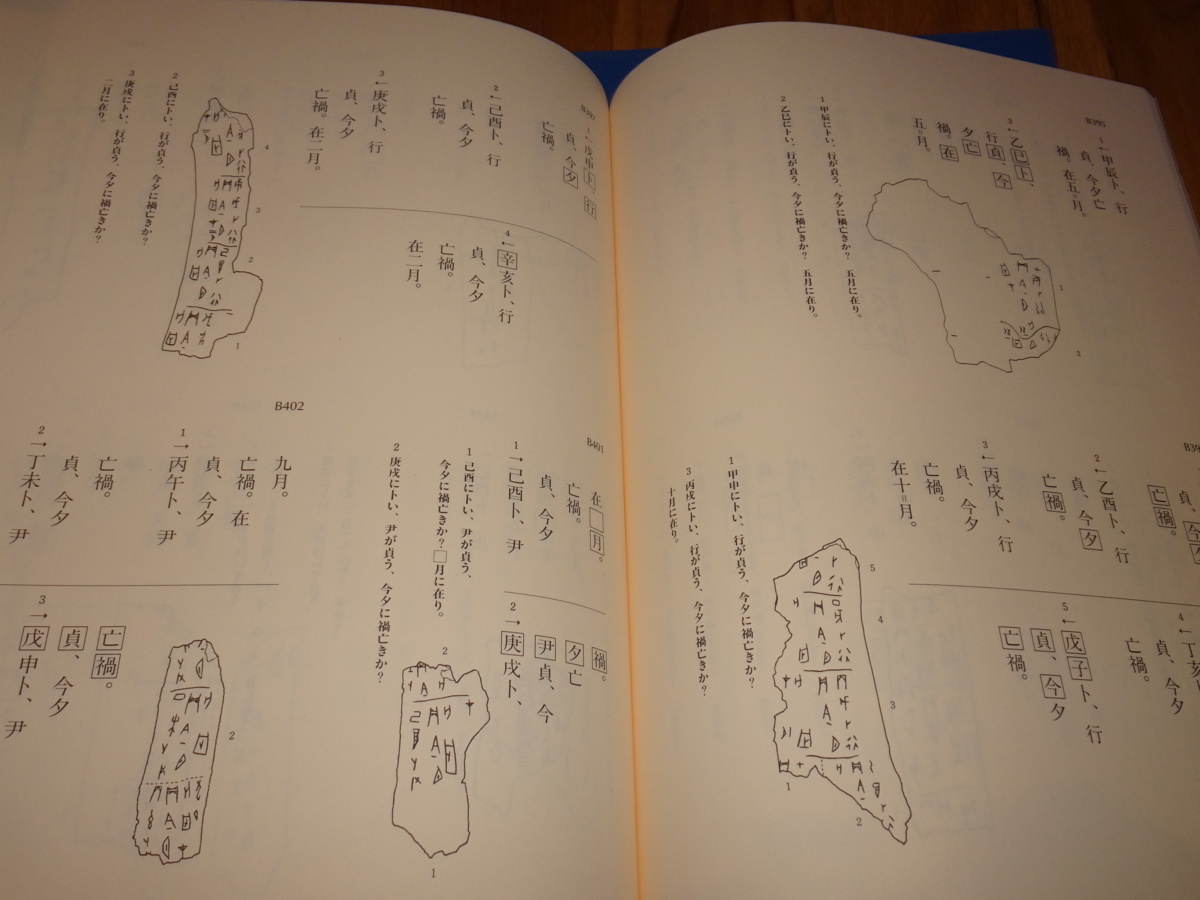 B395
1← 甲辰卜、行
貞、今夕亡
禍。在五月。
3← 乙巳卜、
行貞、今
夕亡
禍。在
五月。
1 甲辰にトい、行が貞う、今夕に禍亡きか? 五月に在り。
2 乙巳にトい、行が貞う、今夕に禍亡きか? 五月に在り。
1
2
貞、今夕
亡禍。
2← 乙酉卜、行
貞、今夕
亡禍。
3← 丙戌卜、行
貞、今夕
亡禍。
在十月。
4← 丁亥卜
貞、今夕
亡禍。
5← 戊子卜、行
貞、今夕
亡禍。
1 甲申にトい、行が貞う、今夕に禍亡きか?
3 丙戌にトい、行が貞う、今夕に禍亡きか?
十月に在り。
5
4
3
2
1
1← 戊申卜、行
貞、今夕
亡禍。
2← 己酉卜、行
貞、今夕
亡禍。
3← 庚戌卜、行
貞、今夕
亡禍。在二月。
4← 辛亥卜、行
貞、今夕
亡禍。
在二月。
2 己酉にトい、行が貞う、今夕に禍亡きか?
3 庚戌にトい、行が貞う、今夕に禍亡きか?
二月に在り。
4
3
2
1
B401
在□月。
亡禍。
貞、今夕
1→ 己酉卜、尹
禍。
夕亡
尹貞、今
2→ 庚戌卜、
1 己酉にトい、尹が貞う、
今夕に禍亡きか?□月に在り。
2 庚戌にトい、尹が貞う、今夕に禍亡きか?
2
1
B402
九月。
亡禍。在
貞、今夕
1→ 丙午卜、尹
亡禍。
貞、今夕
2→ 丁未卜、尹
亡禍。
貞、今夕
3→ 戊申卜、尹
2